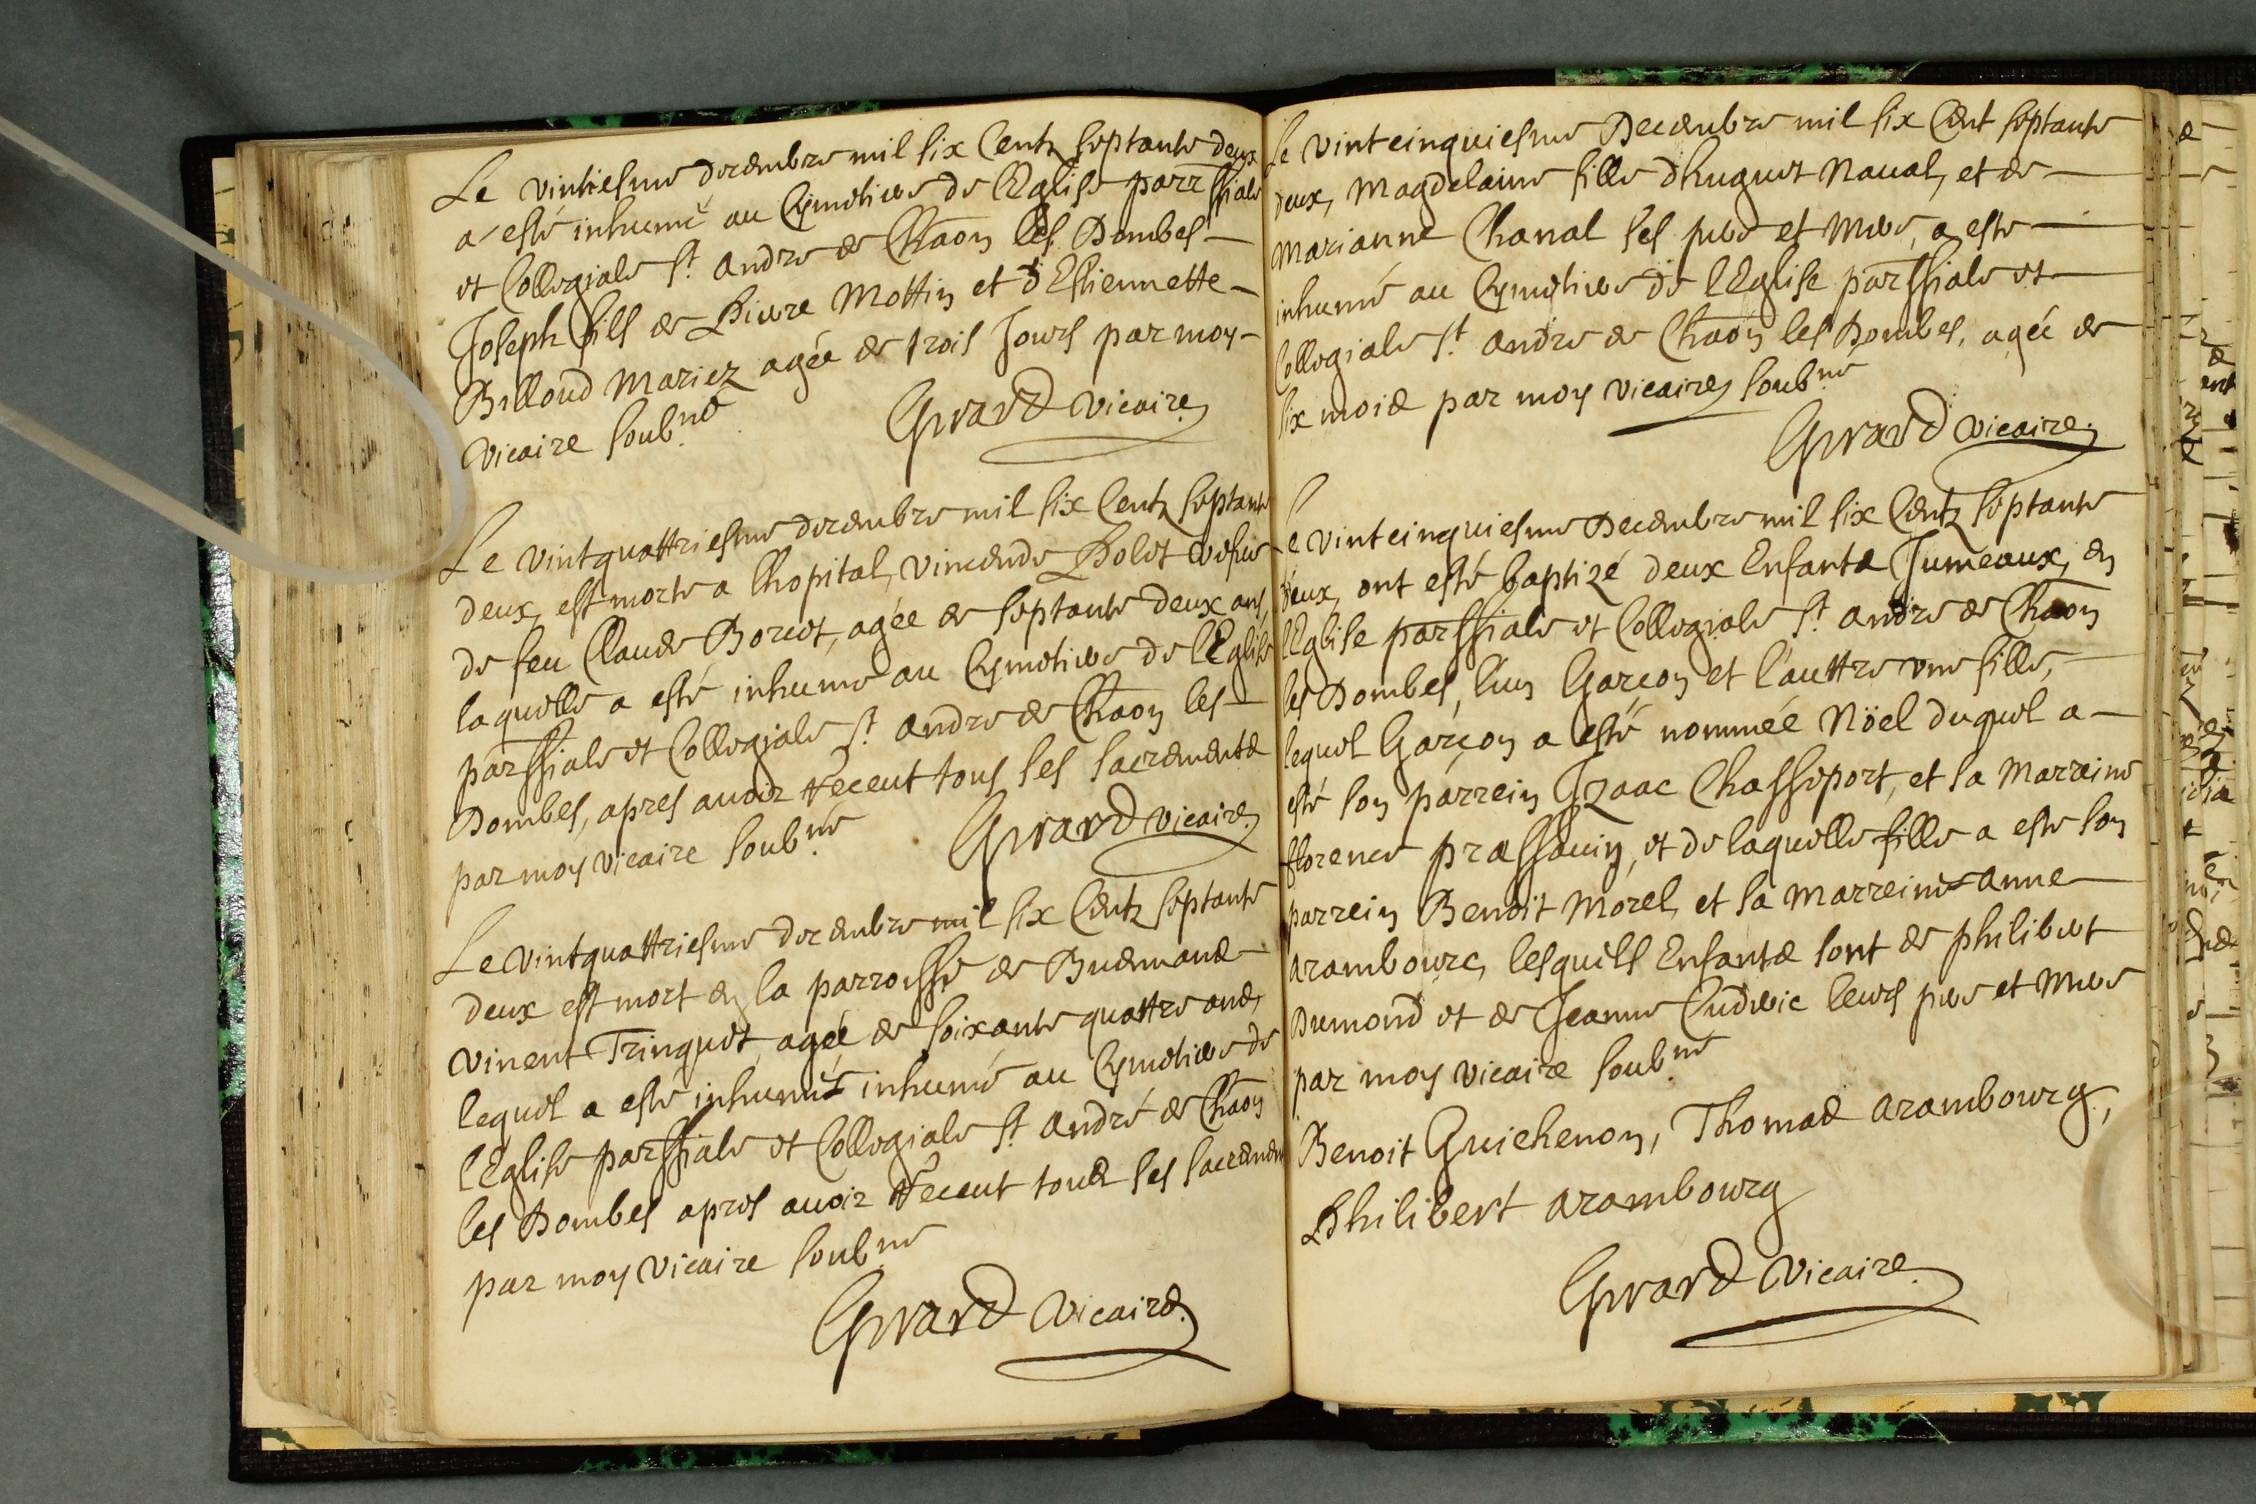 Le vintiesme decembre mil six Centz septante deux
a esté inhumé au Cymetiere de l'Eglise parrssiale
et Collegiale St. andre de Chaon les Dombes
Joseph fils de Pierre Mottin et d'Estiennette
Billoud Mariez agée de trois Jours par moy
vicaire soubné
Girard vicaire
Le vintquattriesme decembre mil six Centz septante
deux, est morte a l'hopital, vincende Polet vefue
de feu Claude Boriot, agée de septante deux ans,
laquelle a esté inhume au Cymetiere de l'Eglise
parssiale et Collegiale St. andre de Chaon les
Dombes, apres auoir receut tous ses sacrements
par moy vicaire soubné
Girard vicaire
Le vintquattriesme decembre mil six Centz septante
deux est mort en la parroisse de Buenans
vincent Trinquet, agée de soixante quattre ans,
lequel a este inhumé inhumé au Cymetiere de
l'Eglise parssiale et Collegiale St. andré de Chaon
les Dombes apres auoir receut tous ses sacremen
par moy vicaire soubné
Girard vicaire
Le vinteinquiesme Decembre mil six Cent septante
deux, Magdelaine fille d'huguet Naual, et de
Marianne Chanal ses pere et Mere, a este
inhumé au Cymetiere de l'Eglise parssiale et
Collegiale St. andre de Chaon les Dombes, agée de
six mois par moy vicaire soubné
Girard vicaire
Le vinteinquiesme Decembre mil six Centz septante
deux, ont esté baptizé deux Enfants Jumeaux, en
l'Eglise parssiale et Collegiale St. andre de Chaon
les Dombes, l'un Garcon et l'auttre une fille,
lequel Garçon a esté nommée Nöel duquel a
esté son parrein Izaac Chasseport, et sa Marraine
florence prassauin, et de laquelle fille a este son
parrein Benoit Morel, et sa Marreine anne
arambourc, lesquels Enfants sont de philibert
Dumond et de Jeanne Cudric leurs pere et Mere
par moy vicaire soubné
Benoit Guichenon, Thomas arambourg,
Philibert arambourg
Girard vicaire